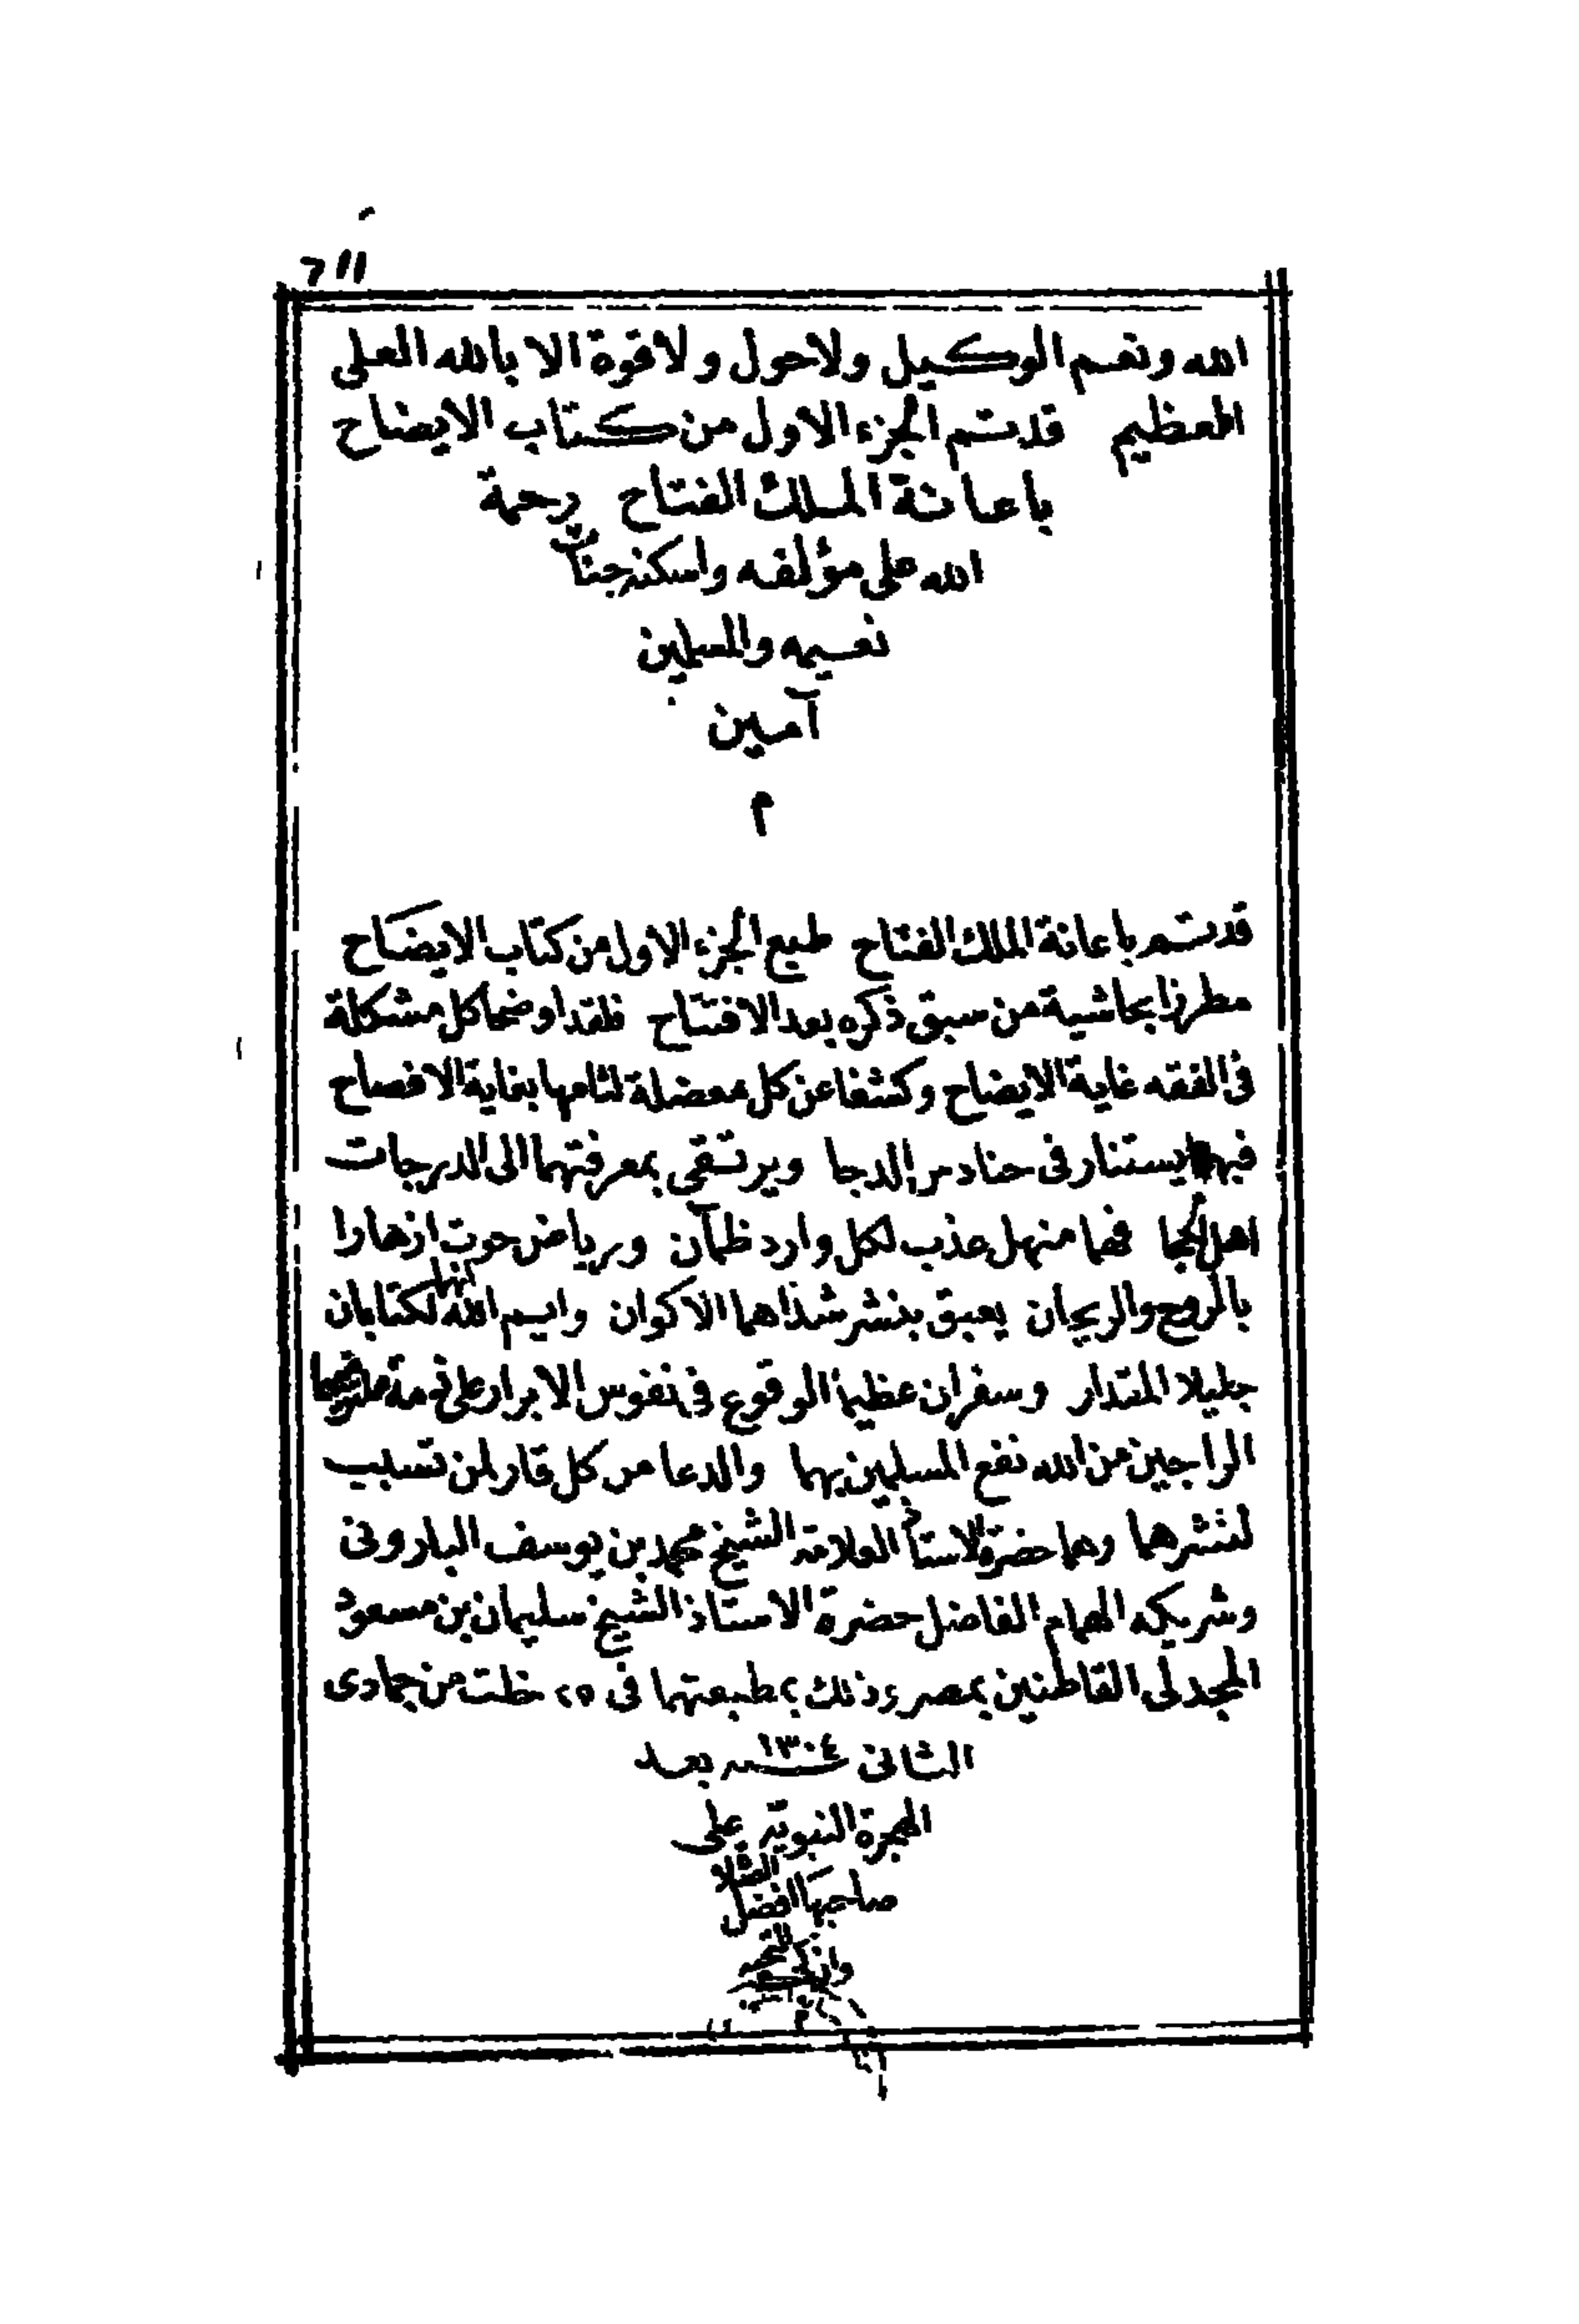 الله ونعم الوكيل ولاحول ولا قوة الا بالله العلى
العظيم قد تم الجزء الاول من كتاب الايضاح
باعانة الملك الفتاح رحمة
الله على مؤلفه واسكنه جنات
نعيمه والمسلمين
آمين
م
قد تم باعانة الملك الفتاح طبع الجزء الاول من كتاب الايضاح
مطرزا بحاشية من سبق ذكره بعد الافتتاح فلقد اوضحا كل مشكلة
فى الفقه غاية الايضاح وكشفا عن كل معضلة لثامها بغاية الافصاح
فبهما يستنار فى حنادس الدجا ويرتقى بمعرفتهما الى الدرجات
اهل الحجا فهما منهل عذب لكل وارد ظمآن ورياض حوت ازهارا
بالروح والريحان يعبق بنشر شذاهما الاكوان وايم الله انهما لكتابان
جليلا المقدار وسفران عظيما الوقوع فى نفوس الابرار على ذمة
الراجين من الله نفع المسلمين بهما والدعا من كل قار لمن تسبب
لنشرهما وهما حضرة الاستاذ العلامة الشيخ محمد بن يوسف البارونى
وشريكه الهمام الفاضل حضرة الاستاذ الشيخ سليمان بن مسعود
المجدلى القاطنين بمصر وذلك بمطبعتهما فى ٢٥ خلت من جمادى
الثانى ١٣٠٤ سنة بعد
الهجرة النبوية على
صاحبها افضل الصلاة
وازكى التحية